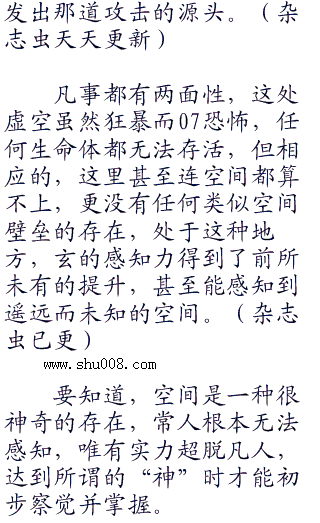 发出那道攻击的源头。（杂
志虫天天更新）
凡事都有两面性，这处
虚空虽然狂暴而07恐怖，任
何生命体都无法存活，但相
应的，这里甚至连空间都算
不上，更没有任何类似空间
壁垒的存在，处于这种地
方，玄的感知力得到了前所
未有的提升，甚至能感知到
遥远而未知的空间。（杂志
虫已更）
www.shu008.com
要知道，空间是一种很
神奇的存在，常人根本无法
感知，唯有实力超脱凡人，
达到所谓的“神”时才能初
步察觉并掌握。